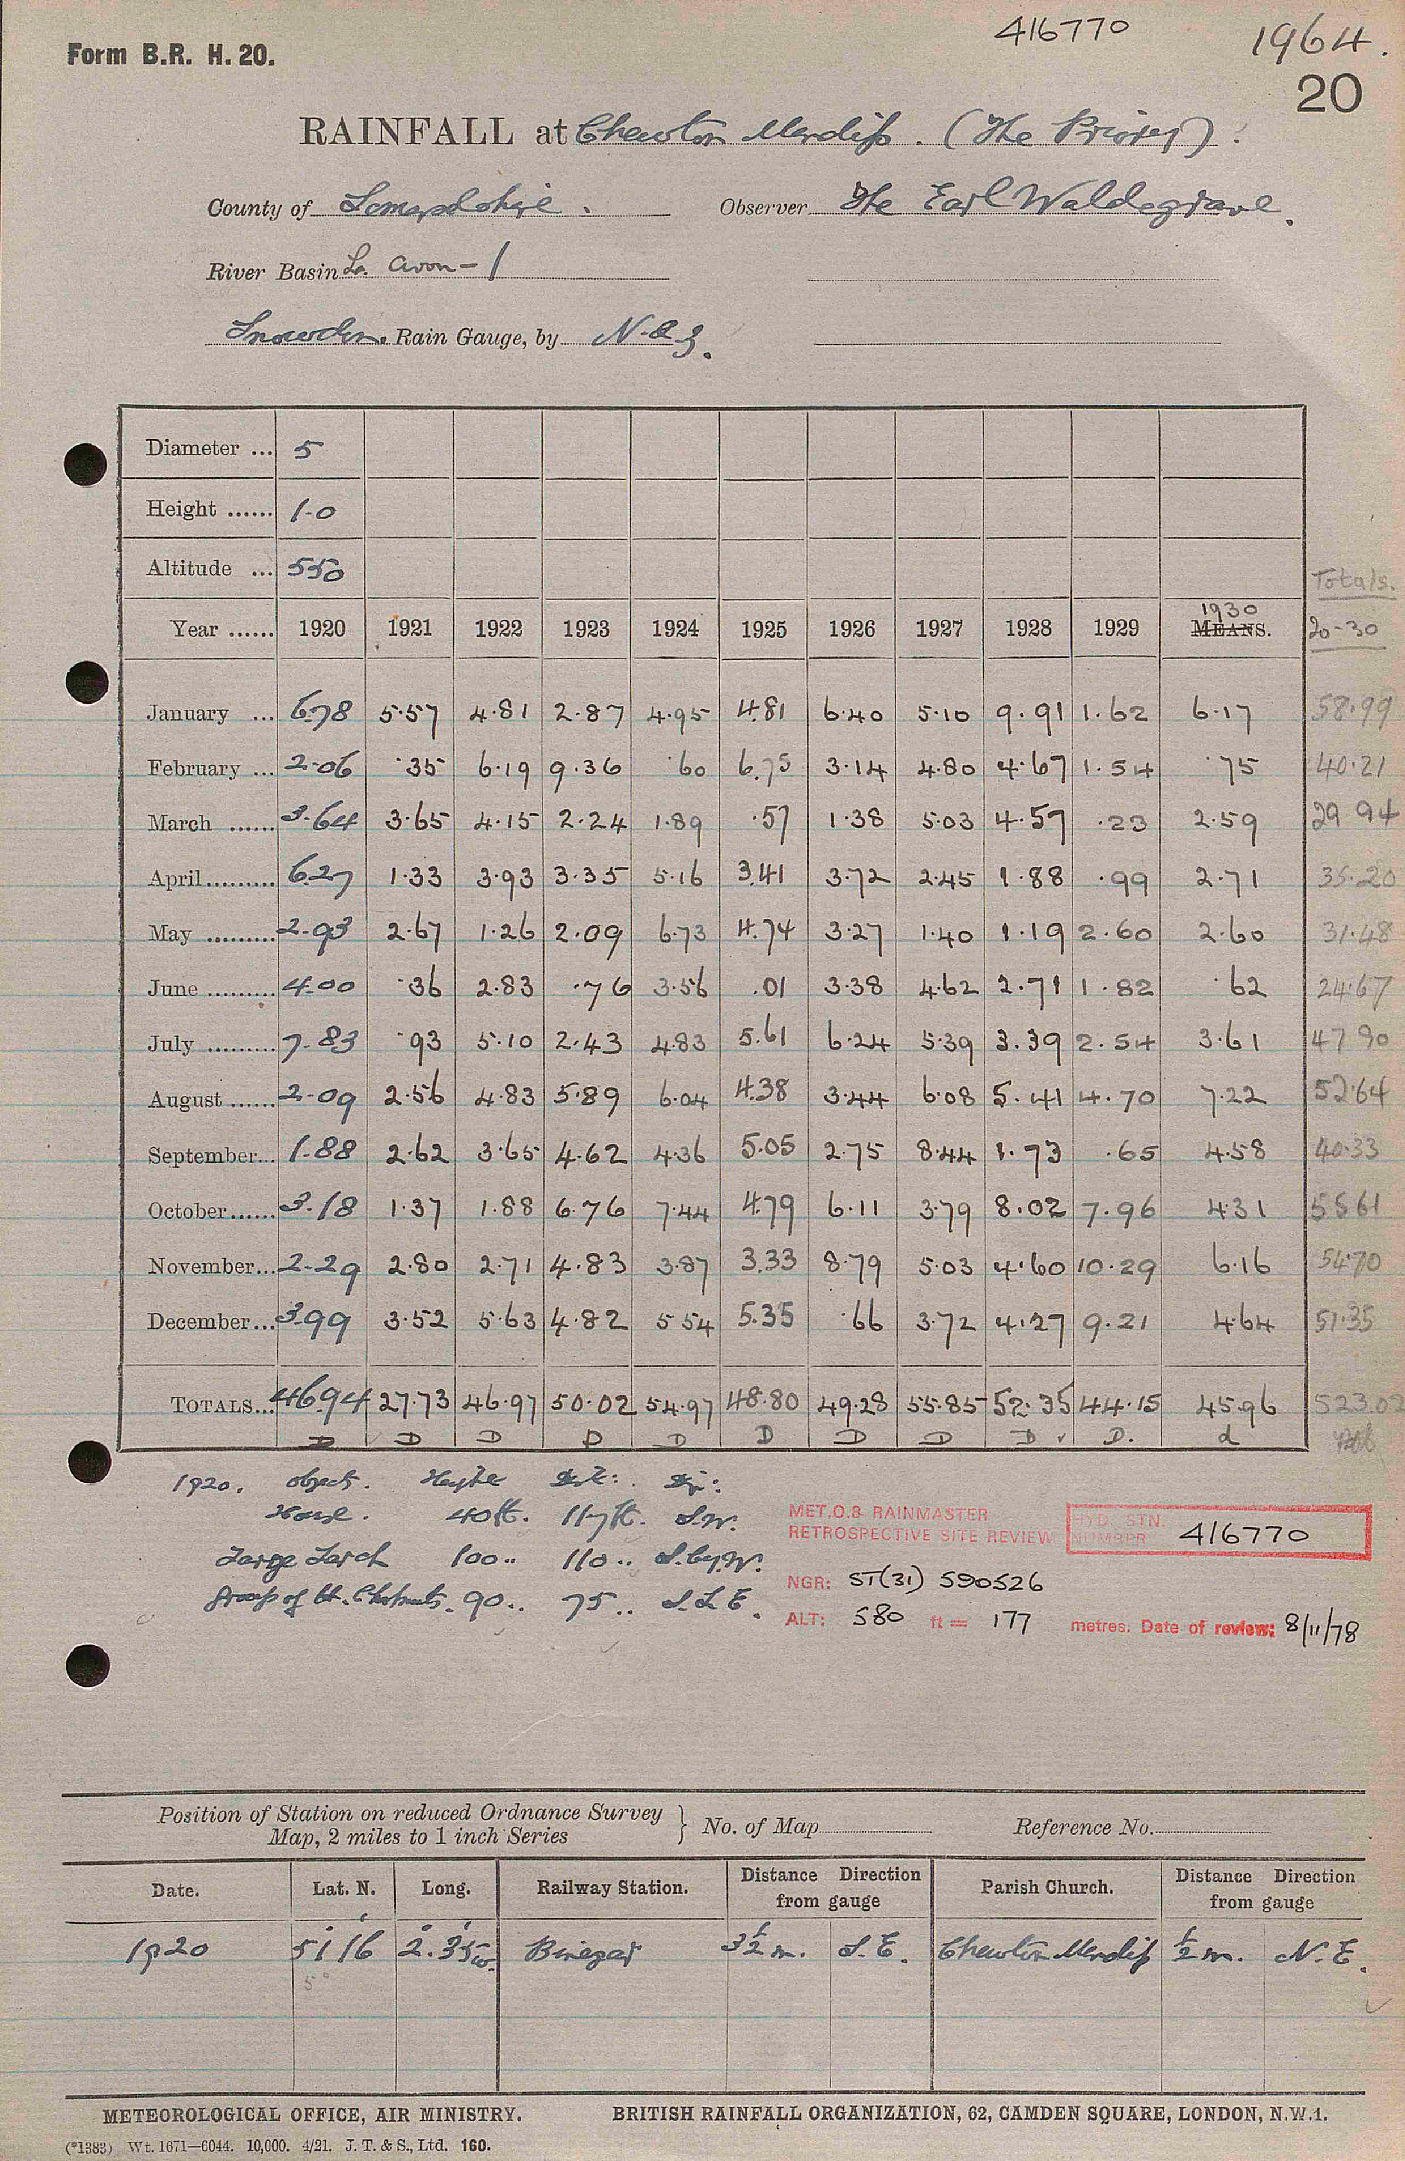 416770 1964.
Form B.R. H. 20. 20
RAINFALL at Chewton Mendip. (The Priory).
County of Somersetshire. Observer The Earl Waldegrave.
River Basin L. Avon - 1
Snowdon. Rain Gauge, by N & Z.
Diameter ... 5
Height ...... 1-0
Altitude ... 550 Totals.
Year ...... 1920 1921 1922 1923 1924 1925 1926 1927 1928 1929 1930 MEANS. 20-30
January ... 6.78 5.57 4.81 2.87 4.95 4.81 6.40 5.10 9.91 1.62 6.17 58.99
February ... 2.06 .35 6.19 9.36 .60 6.75 3.14 4.80 4.67 1.54 .75 40.21
March ...... 3.64 3.65 4.15 2.24 1.89 .57 1.38 5.03 4.57 .23 2.59 29 94
April......... 6.27 1.33 3.93 3.35 5.16 3.41 3.72 2.45 1.88 .99 2.71 35.20
May ......... 2.93 2.67 1.26 2.09 6.73 4.74 3.27 1.40 1.19 2.60 2.60 31.48
June ......... 4.00 .36 2.83 .76 3.56 .01 3.38 4.62 2.71 1.82 .62 24.67
July ......... 7.83 .93 5.10 2.43 4.83 5.61 6.24 5.39 3.39 2.54 3.61 47 90
August ...... 2.09 2.56 4.83 5.89 6.04 4.38 3.44 6.08 5.41 4.70 7.22 52.64
September... 1.88 2.62 3.65 4.62 4.36 5.05 2.75 8.44 1.73 .65 4.58 40.33
October...... 3.18 1.37 1.88 6.76 7.44 4.79 6.11 3.79 8.02 7.96 4.31 55 61
November... 2.29 2.80 2.71 4.83 3.87 3.33 8.79 5.03 4.60 10.29 6.16 54.70
December... 3.99 3.52 5.63 4.82 5 54 5.35 .66 3.72 4.27 9.21 4.64 51.35
TOTALS... 46.94 27.73 46.97 50.02 54.97 48.80 49.28 55.85 52.35 44.15 45.96 523.02
D D D D D D D D D D. d
1920. Object. Height Dist: Dir:
House. 40 ft. 117 ft. S.W.
Large Larch 100 .. 110 .. S. by W.
Group of Ht. Chestnuts. 90 .. 75 .. S.S.E.
MET.O.8 RAINMASTER
RETROSPECTIVE SITE REVIEW
HYD. STN. NUMBER 416770
NGR: ST(31) 590526
ALT: 580 ft = 177 metres. Date of review: 8/11/78
Position of Station on reduced Ordnance Survey Map, 2 miles to 1 inch Series } No. of Map Reference No.
Date. Lat. N. Long. Railway Station. Distance Direction from gauge Parish Church. Distance Direction from gauge
1920 51° 16' 2° 35' w. Binegar 3½ m. S.E. Chewton Mendip ½ m. N.E.
METEOROLOGICAL OFFICE, AIR MINISTRY. BRITISH RAINFALL ORGANIZATION, 62, CAMDEN SQUARE, LONDON, N.W.1.
(*1383) Wt. 1671—6044. 10,000. 4/21. J. T. & S., Ltd. 160.